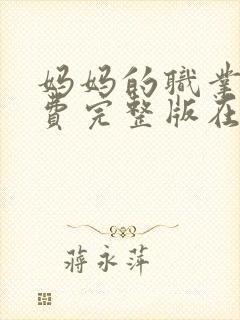 妈妈的職業
費完整版在
蔣永萍